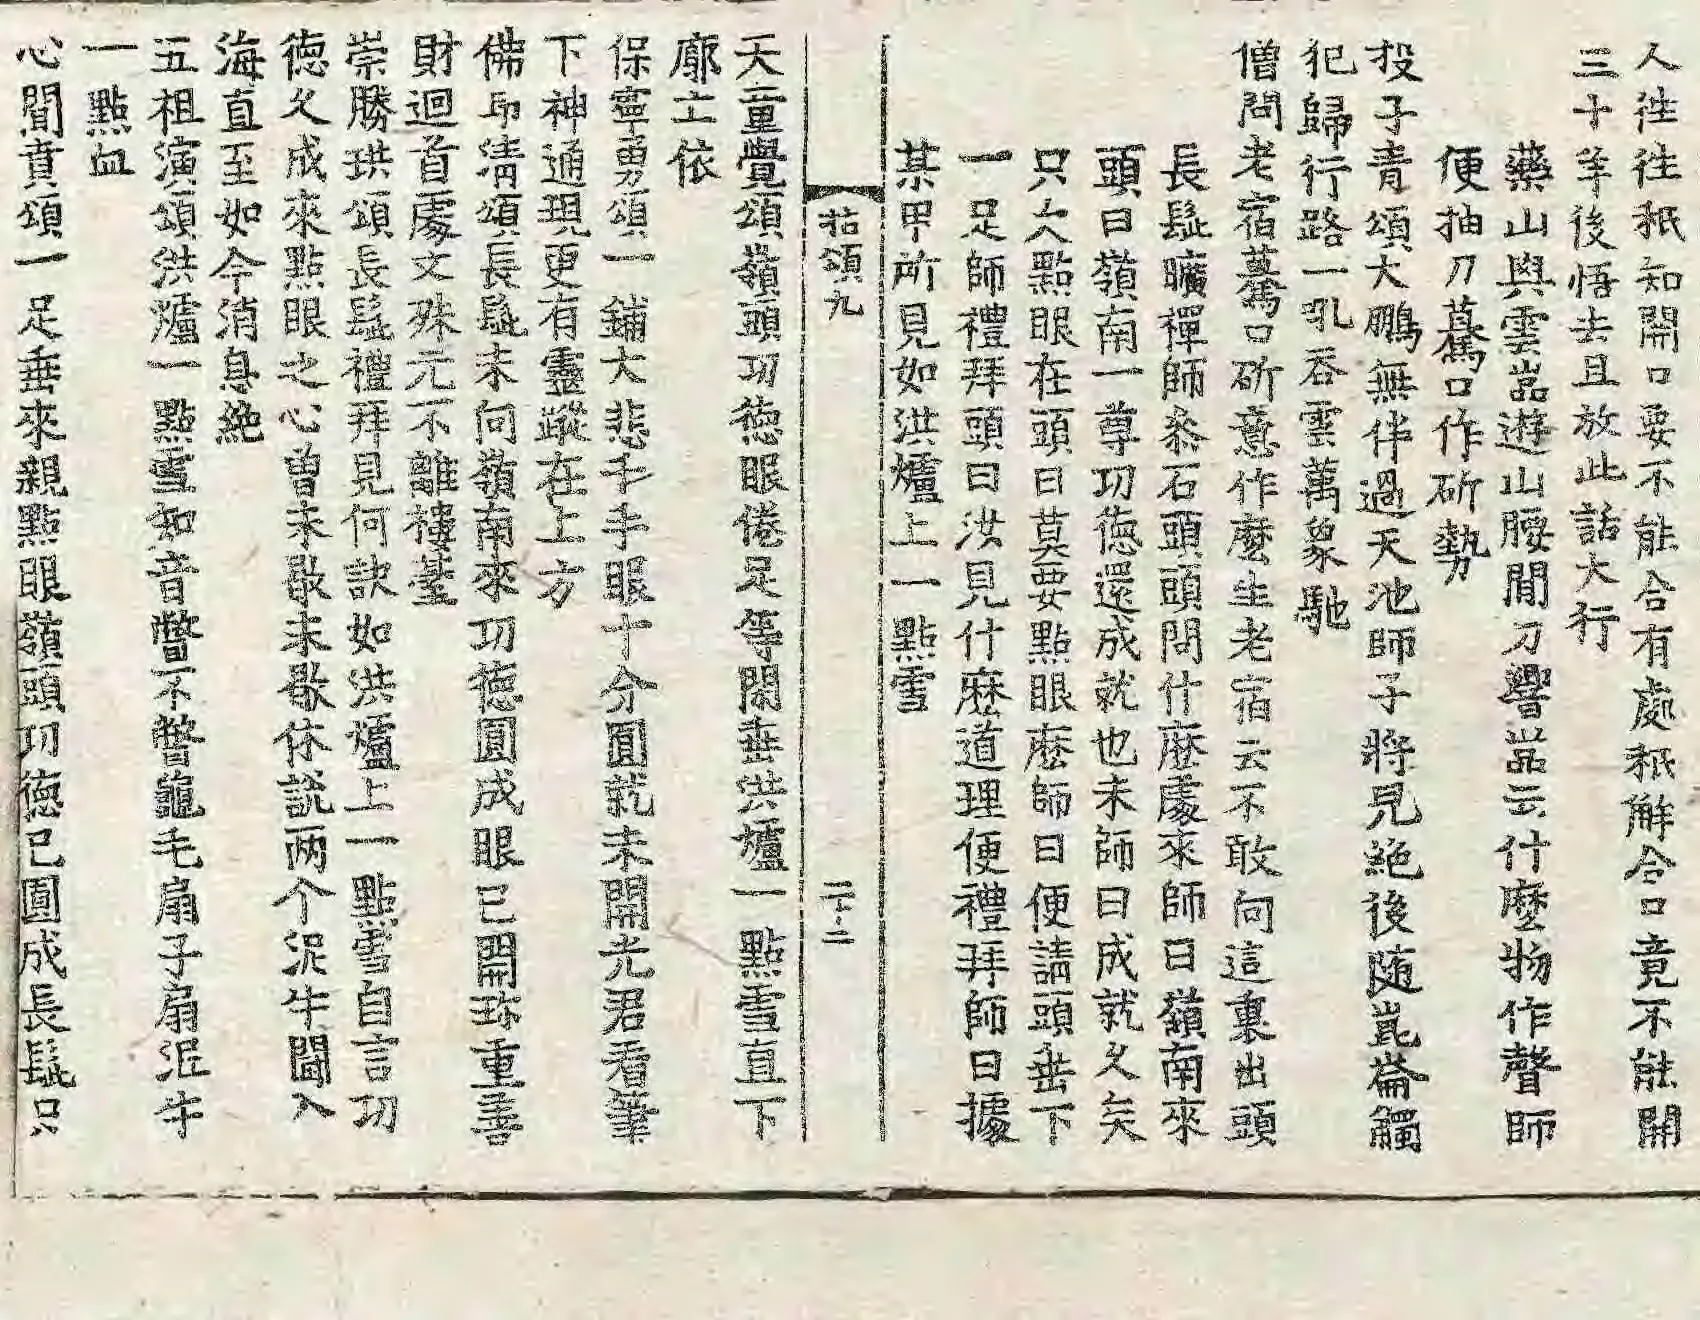 人徃徃秖知開口要不能合有處秖解合口竟不能開
三十年後悟去且放此話大行
藥山與雲嵒遊山腰間刀響嵒云什麼物作聲師
便抽刀驀口作斫勢
投子青頌大鵬無伴過天池師子將兒絶後隨崑崙觸
犯歸行路一吼吞雲萬象馳
僧問老宿驀口斫意作麼生老宿云不敢向這裏出頭
長髭曠禪師叅石頭頭問什麼處來師曰嶺南來
頭曰嶺南一尊功德還成就也未師曰成就久矣
只欠點眼在頭曰莫要點眼麼師曰便請頭垂下
一足師禮拜頭曰汝見什麼道理便禮拜師曰據
某甲所見如洪爐上一點雪
拈頌九
二十二
天童覺頌嶺頭功德眼倦足等閑垂洪爐一點雪直下
廓亡依
保寧勇頌一鋪大悲千手眼十分圓就未開光君看筆
下神通現更有靈蹤在上方
佛印清頌長髭未向嶺南來功德圓成眼已開珎重善
財迴首處文殊元不離樓臺
崇勝珙頌長髭禮拜見何訣如洪爐上一點雪自言功
德久成來點眼之心曾未歇未歇休說兩个泥牛鬪入
海直至如今消息絶
五祖演頌洪爐一點雪知音瞥不瞥龜毛扇子扇泥牛
一點血
心聞賁頌一足垂來親點眼嶺頭功德已圓成長髭只